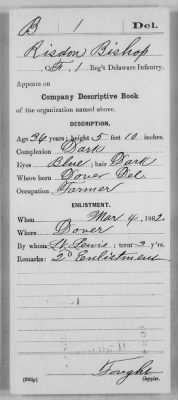 B 1 Del.
Risdon Bishop
Co. F, 1 Reg't Delaware Infantry.
Appears on
Company Descriptive Book
of the organization named above.
DESCRIPTION.
Age 36 years; height 5 feet 10 inches.
Complexion Dark
Eyes Blue; hair Dark
Where born Dover Del.
Occupation Farmer
ENLISTMENT.
When Mar 4, 1862.
Where Dover
By whom Lewis; term 3 y'rs.
Remarks: 2d Enlistment
Copyist.